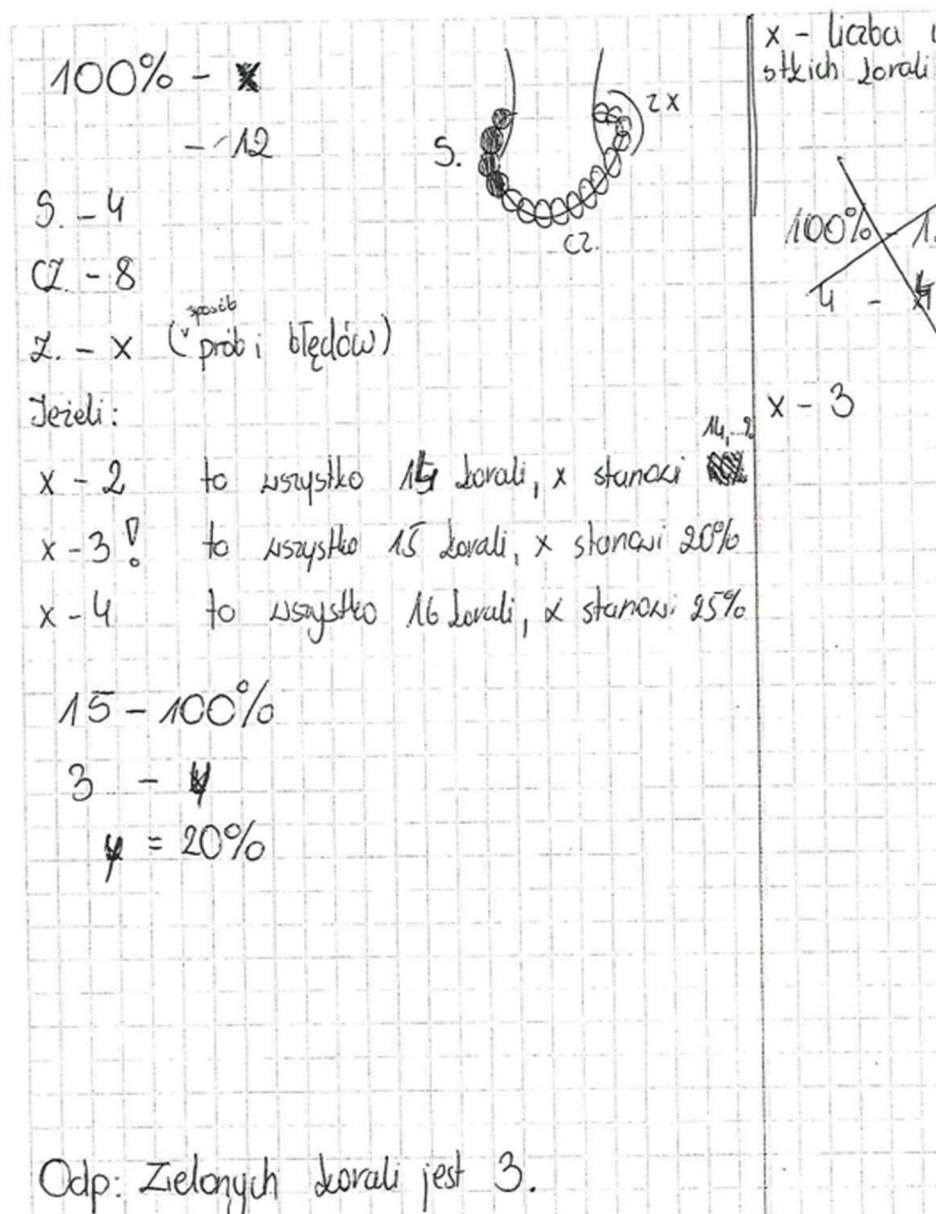 100% - x
- 12
S. - 4
CZ. - 8
Z. - x (sposób prób i błędów)
Jeżeli:
x - 2 to wszystko 14 korali, x stanowi 14,..%
x - 3! to wszystko 15 korali, x stanowi 20%
x - 4 to wszystko 16 korali, x stanowi 25%
15 - 100%
3 - y
y = 20%
Odp: Zielonych korali jest 3.
S.
CZ.
ZX
x - liczba
stkich korali
100% - 1
4 -
x - 3